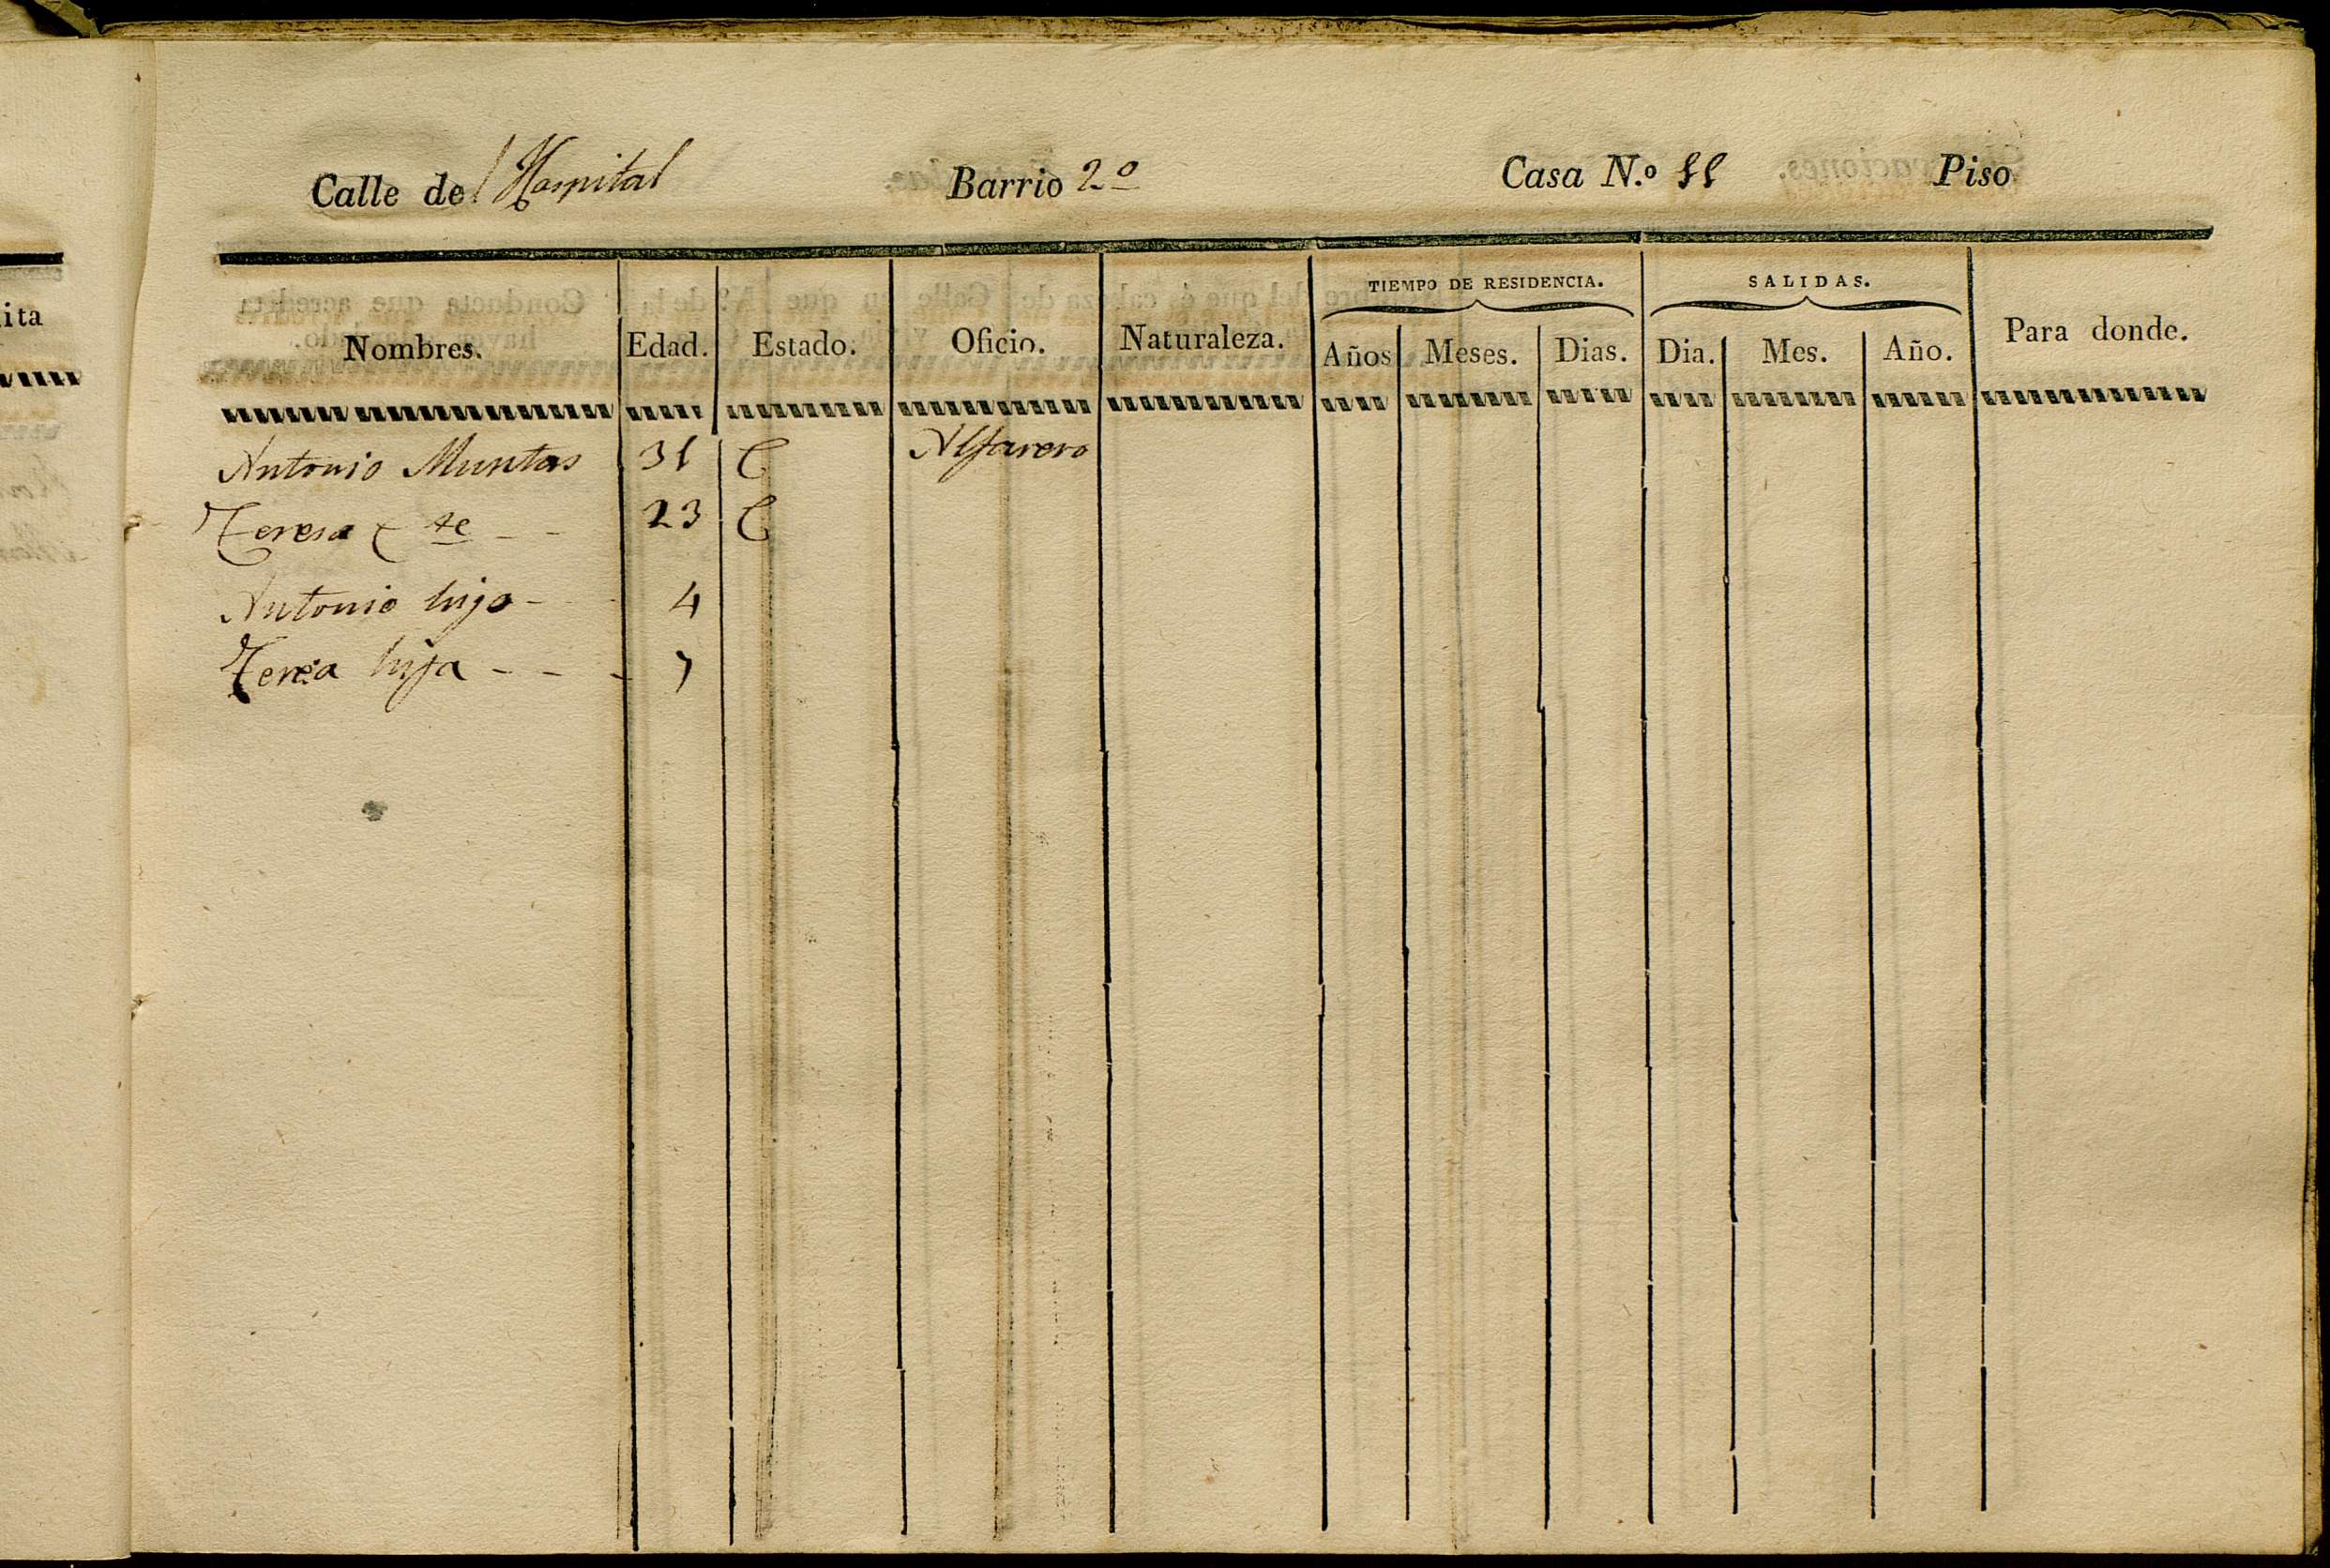 Calle del Hospital Barrio 2º Casa N.º 11 Piso
TIEMPO DE RESIDENCIA. SALIDAS.
Nombres. Edad. Estado. Oficio. Naturaleza. Años Meses. Dias. Dia. Mes. Año. Para donde.
Antonio Muntas 31 C Alfarero
Teresa 23 C
Antonio hijo - 4
Teresa hija - - - 7
ita